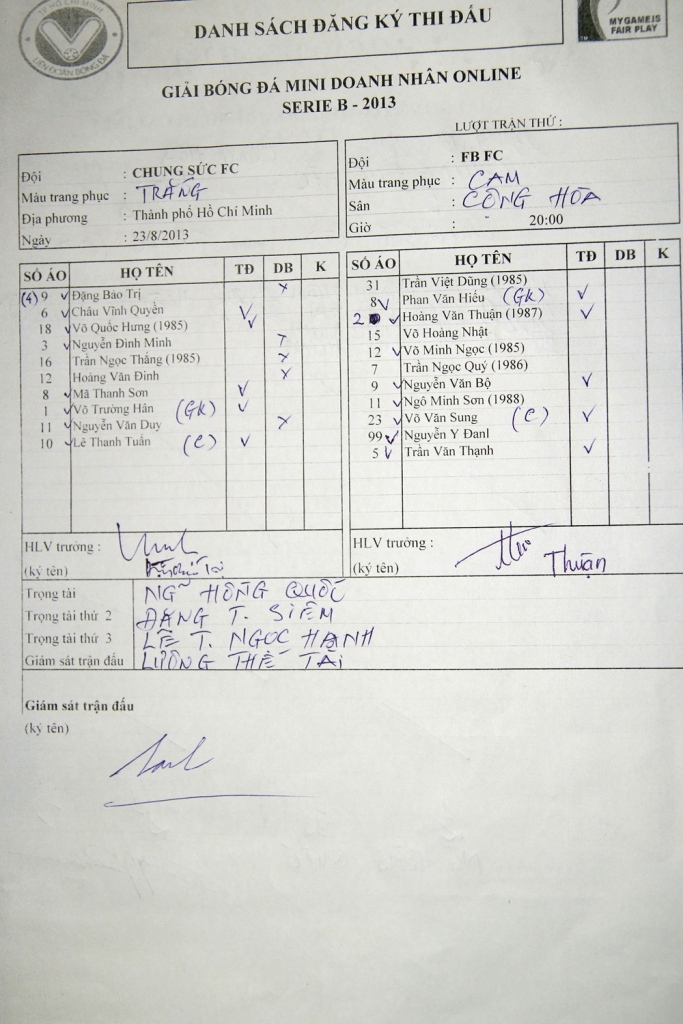 TP HỒ CHÍ MINH
LIÊN ĐOÀN BÓNG ĐÁ
DANH SÁCH ĐĂNG KÝ THI ĐẤU
MY GAME IS
FAIR PLAY
GIẢI BÓNG ĐÁ MINI DOANH NHÂN ONLINE
SERIE B - 2013
LƯỢT TRẬN THỨ :
Đội : CHUNG SỨC FC
Màu trang phục : TRẮNG
Địa phương : Thành phố Hồ Chí Minh
Ngày : 23/8/2013
Đội : FB FC
Màu trang phục : CAM
Sân : CỘNG HÒA
Giờ : 20:00
SỐ ÁO HỌ TÊN TĐ DB K
(4) 9 ✓ Đặng Bảo Trị x
6 ✓ Châu Vĩnh Quyền ✓
18 ✓ Võ Quốc Hưng (1985) ✓
3 ✓ Nguyễn Đình Minh
16 Trần Ngọc Thắng (1985) x
12 Hoàng Văn Đinh x
8 ✓ Mã Thanh Sơn ✓
1 ✓ Võ Trường Hân (GK) ✓
11 ✓ Nguyễn Văn Duy x
10 ✓ Lê Thanh Tuấn (C) ✓
SỐ ÁO HỌ TÊN TĐ DB K
31 Trần Việt Dũng (1985)
8 ✓ Phan Văn Hiếu (GK) ✓
2 ✓ Hoàng Văn Thuận (1987) ✓
15 Võ Hoàng Nhật
12 ✓ Võ Minh Ngọc (1985)
7 Trần Ngọc Quý (1986)
9 ✓ Nguyễn Văn Bộ ✓
11 ✓ Ngô Minh Sơn (1988)
23 ✓ Võ Văn Sung (C) ✓
99 ✓ Nguyễn Y Đanl
5 ✓ Trần Văn Thạnh ✓
HLV trưởng :
(ký tên)
HLV trưởng :
(ký tên) Thuận
Trọng tài NGÃ HỒNG QUỐC
Trọng tài thứ 2 ĐẶNG T. SIÊM
Trọng tài thứ 3 LÊ T. NGỌC HẠNH
Giám sát trận đấu LƯƠNG THẾ TÀI
Giám sát trận đấu
(ký tên)